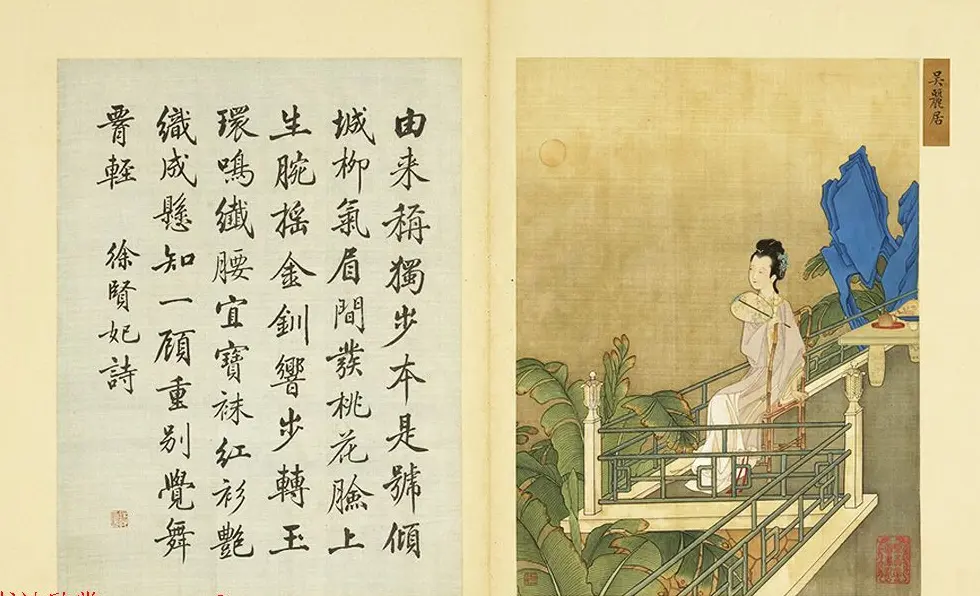 吴麗居
由来稱獨步本是號傾
城柳氣眉間發桃花臉上
生腕摇金釧響步轉玉
環鳴纖腰宜寶袜紅衫艷
織成懸知一顧重别覺舞
腰輕 徐賢妃詩